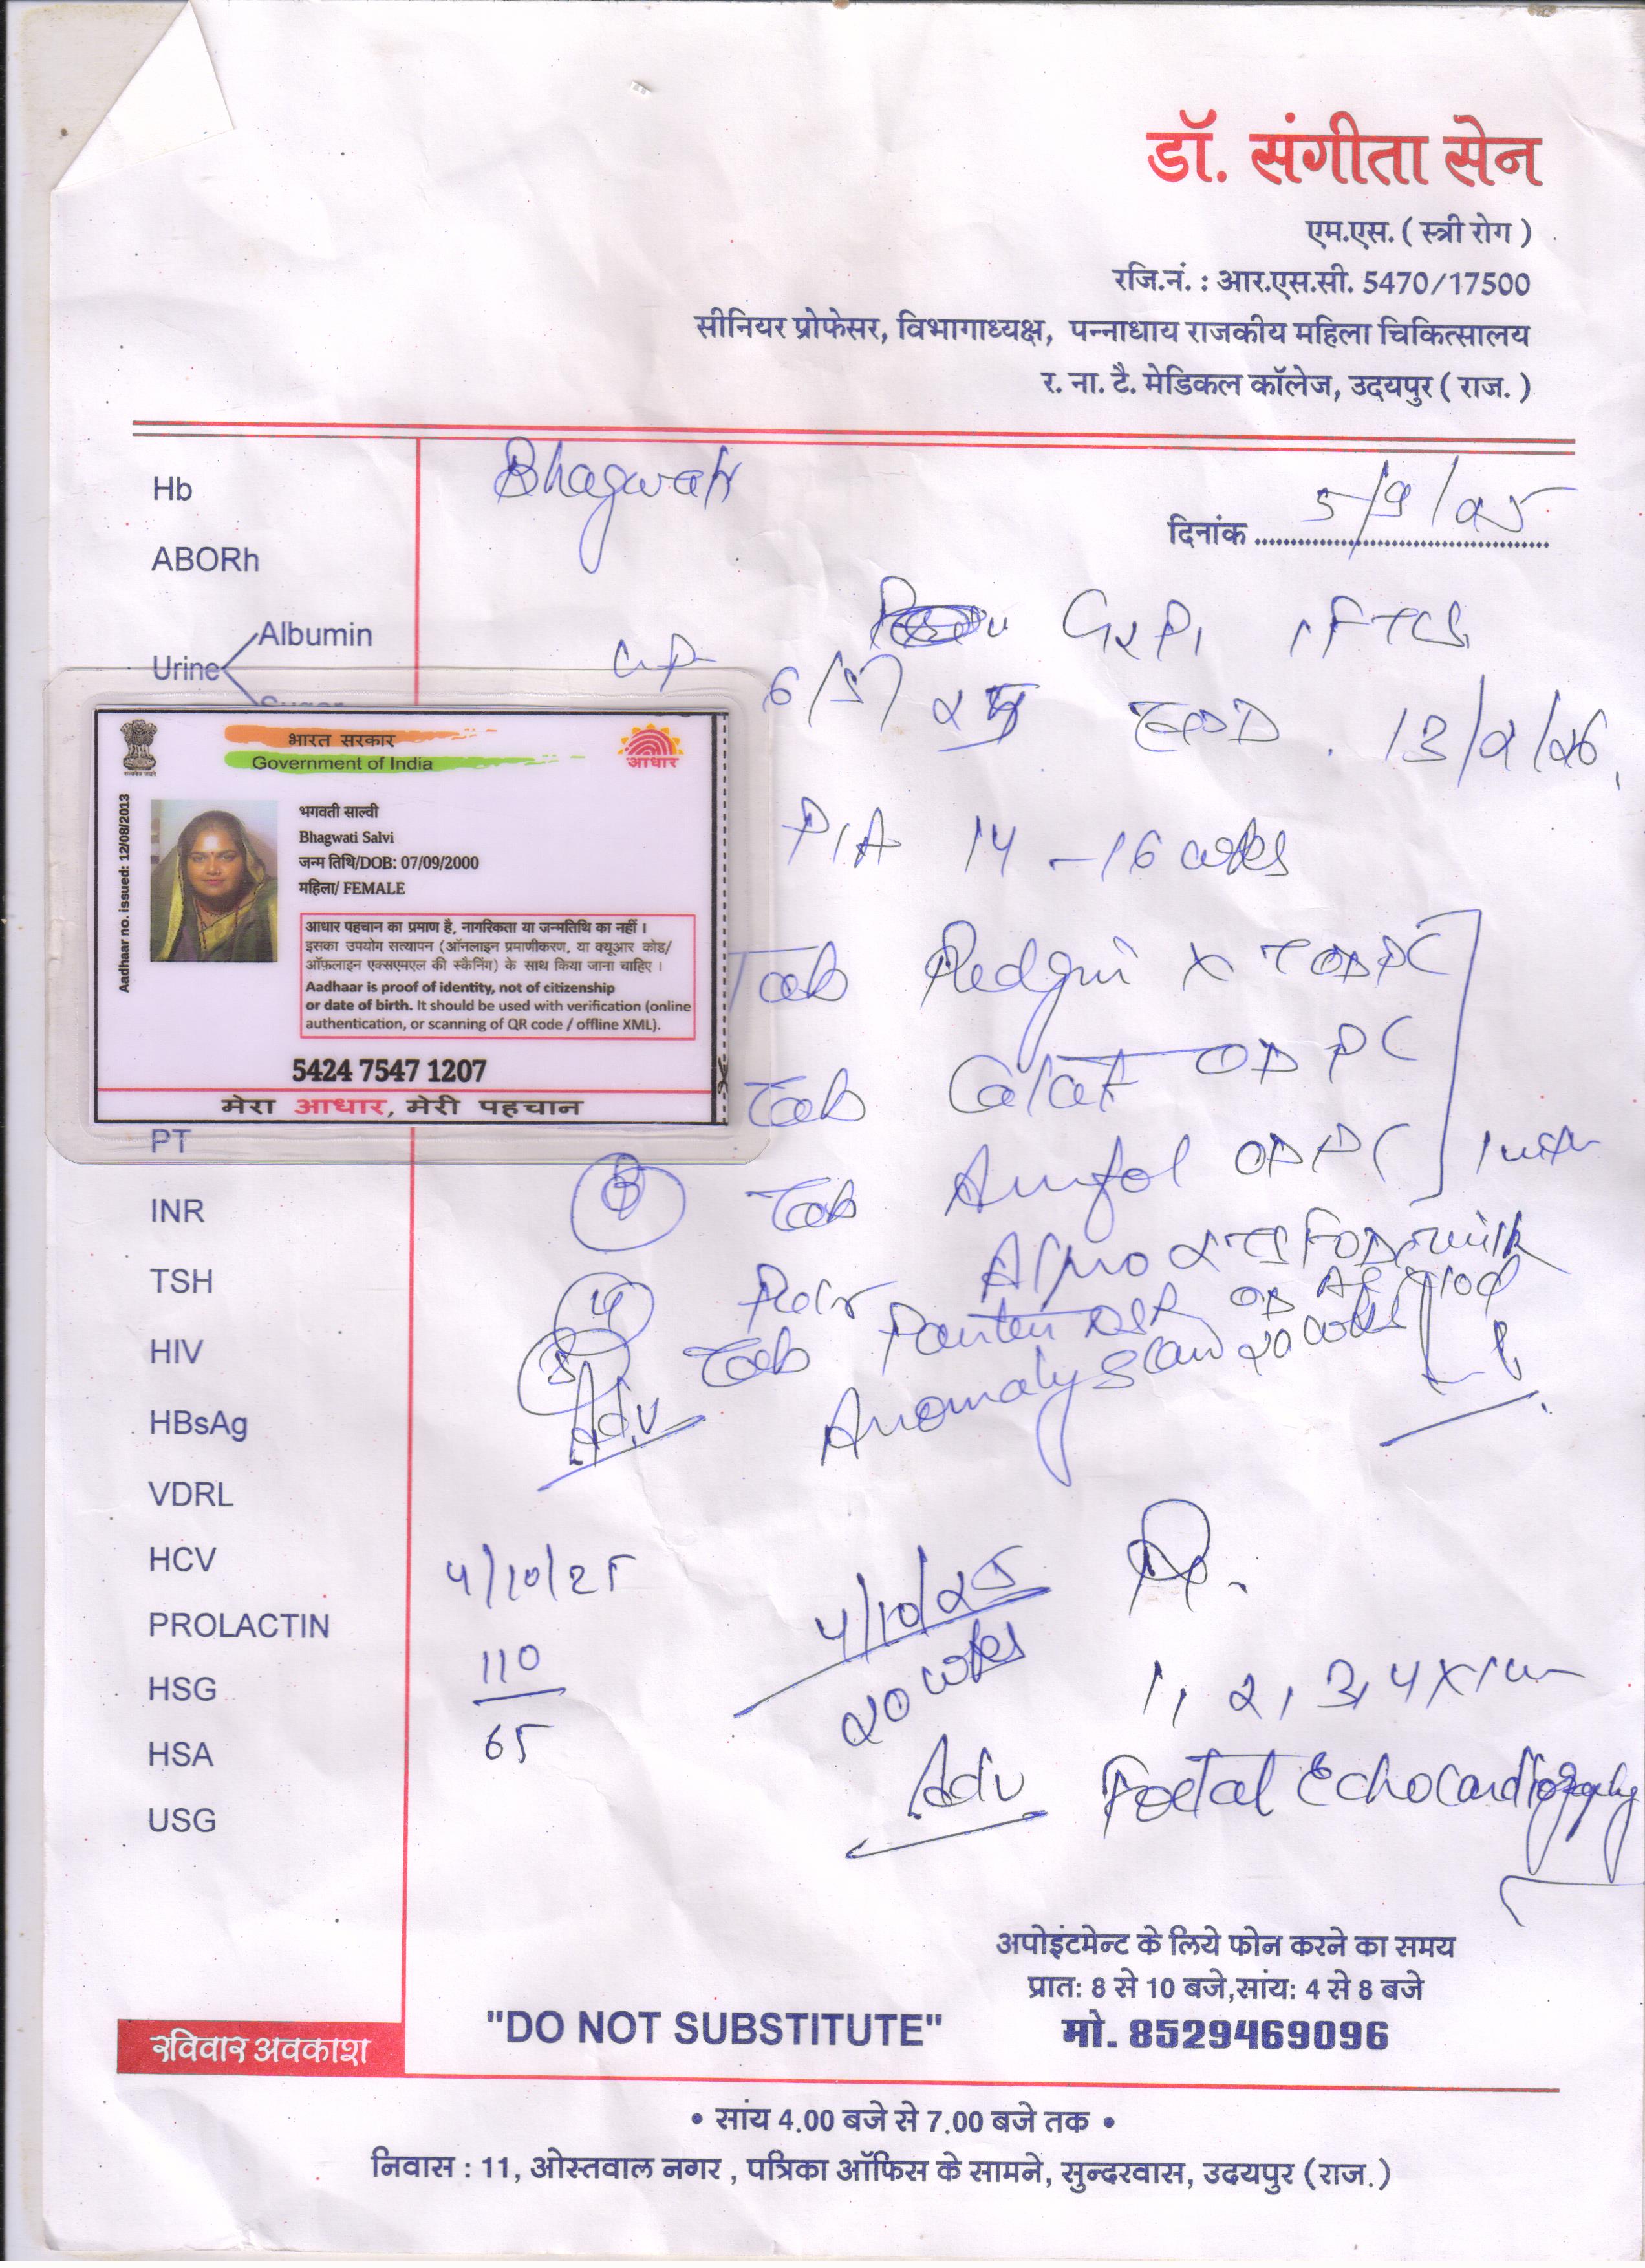 डॉ. संगीता सेन
एम.एस. ( स्त्री रोग )
रजि.नं. : आर.एस.सी. 5470/17500
सीनियर प्रोफेसर, विभागाध्यक्ष, पन्नाधाय राजकीय महिला चिकित्सालय
र. ना. टै. मेडिकल कॉलेज, उदयपुर ( राज. )
Bhagwati
दिनांक 5/9/25
Hb
ABORh
Urine
Albumin
Sugar
G2P1
6/5/25
EDD. 13/2/26
P/A 14 - 16 wks
भारत सरकार
Government of India
आधार
Aadhaar no. issued: 12/08/2013
भगवती साल्वी
Bhagwati Salvi
जन्म तिथि/DOB: 07/09/2000
महिला/ FEMALE
आधार पहचान का प्रमाण है, नागरिकता या जन्मतिथि का नहीं ।
इसका उपयोग सत्यापन (ऑनलाइन प्रमाणीकरण, या क्यूआर कोड/
ऑफ़लाइन एक्सएमएल की स्कैनिंग) के साथ किया जाना चाहिए ।
Aadhaar is proof of identity, not of citizenship
or date of birth. It should be used with verification (online
authentication, or scanning of QR code / offline XML).
5424 7547 1207
मेरा आधार, मेरी पहचान
Tab OD PC
Tab OD PC
Tab OD PC
Tab OD
Adv Anomaly Scan 20 wks
PT
INR
TSH
HIV
HBsAg
VDRL
HCV
PROLACTIN
HSG
HSA
USG
4/10/25
110
65
4/10/25
20 wks
1, 2, 3, 4 x
Adv Foetal Echocardiography
अपोइंटमेन्ट के लिये फोन करने का समय
प्रात: 8 से 10 बजे,सांय: 4 से 8 बजे
"DO NOT SUBSTITUTE"
मो. 8529469096
रविवार अवकाश
• सांय 4.00 बजे से 7.00 बजे तक •
निवास : 11, ओस्तवाल नगर , पत्रिका ऑफिस के सामने, सुन्दरवास, उदयपुर (राज.)